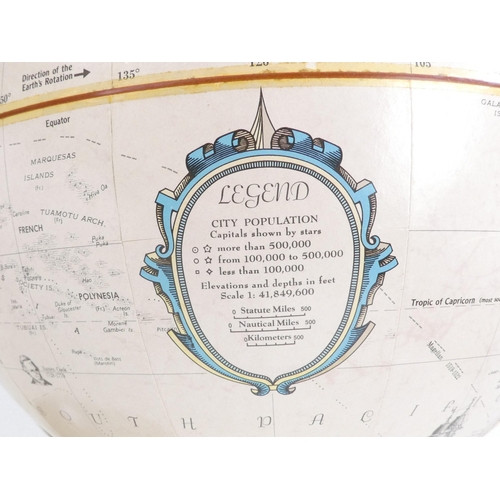 Direction of the
Earth's Rotation
135°
120
105
Equator
MARQUESAS
ISLANDS
(Fr)
Hiva Oa
TUAMOTU ARCH.
FRENCH
POLYNESIA
LEGEND
CITY POPULATION
Capitals shown by stars
more than 500,000
from 100,000 to 500,000
less than 100,000
Elevations and depths in feet
Scale 1: 41,849,600
0 Statute Miles 500
0 Nautical Miles 500
0 Kilometers 500
Tropic of Capricorn
Magellan
U T H P A C I F